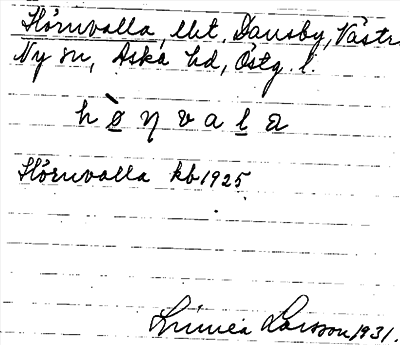 Hörnvalla, lht. Dansby, Västra
Ny sn, Aska hd, Östg. l.
hò̱ηvaḻa
Hörnvalla kb 1925
Linnea Larsson 1931.